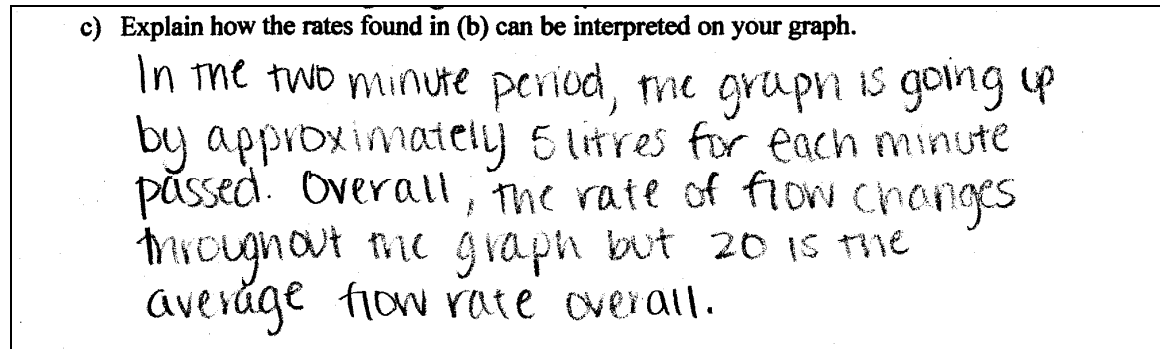 c) Explain how the rates found in (b) can be interpreted on your graph.
In the two minute period, the graph is going up
by approximately 5 litres for each minute
passed. Overall, the rate of flow changes
throughout the graph but 20 is the
average flow rate overall.